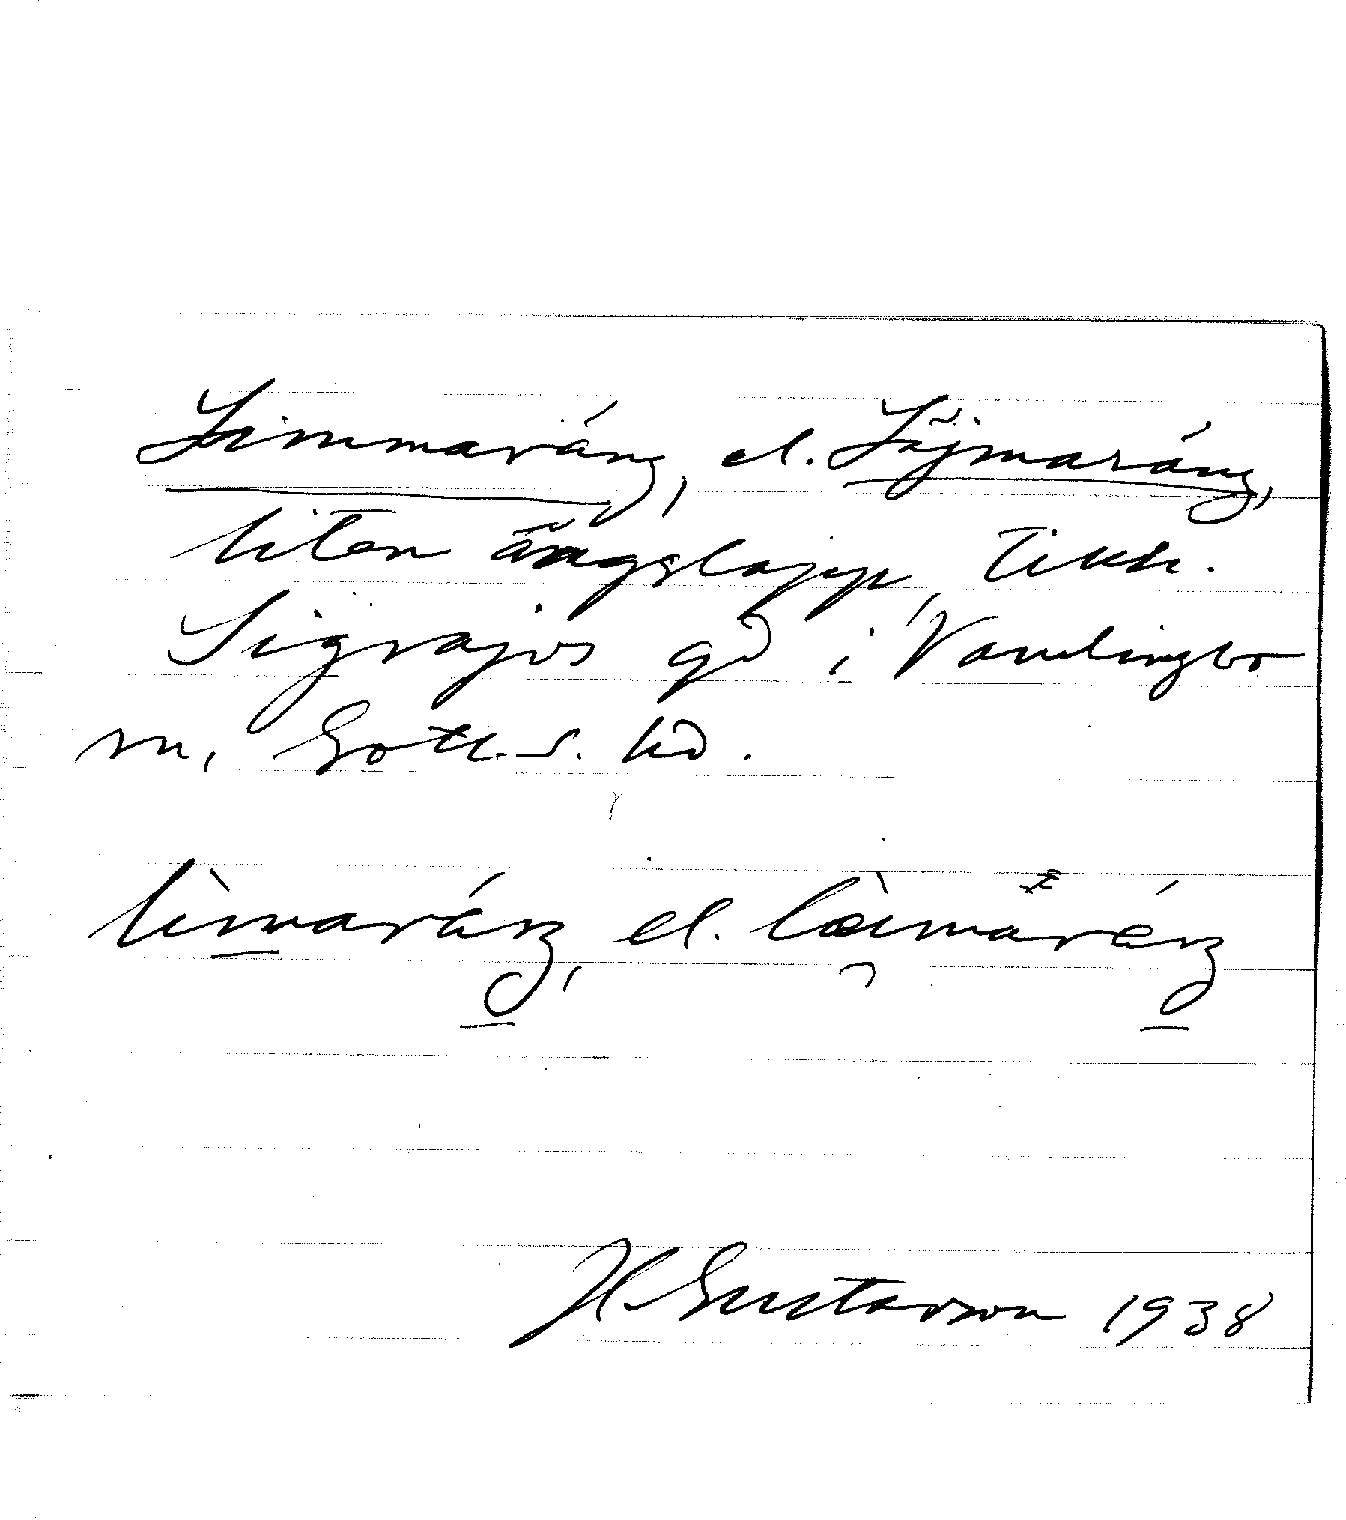 Limmaräng, el. Läjmaräng,
liten ängslapp, tillh.
Sigvajos gd i Vamlingbo
sn, Gotl. S. hd.
limaräng, el. läimaräng
H. Gustavson 1938